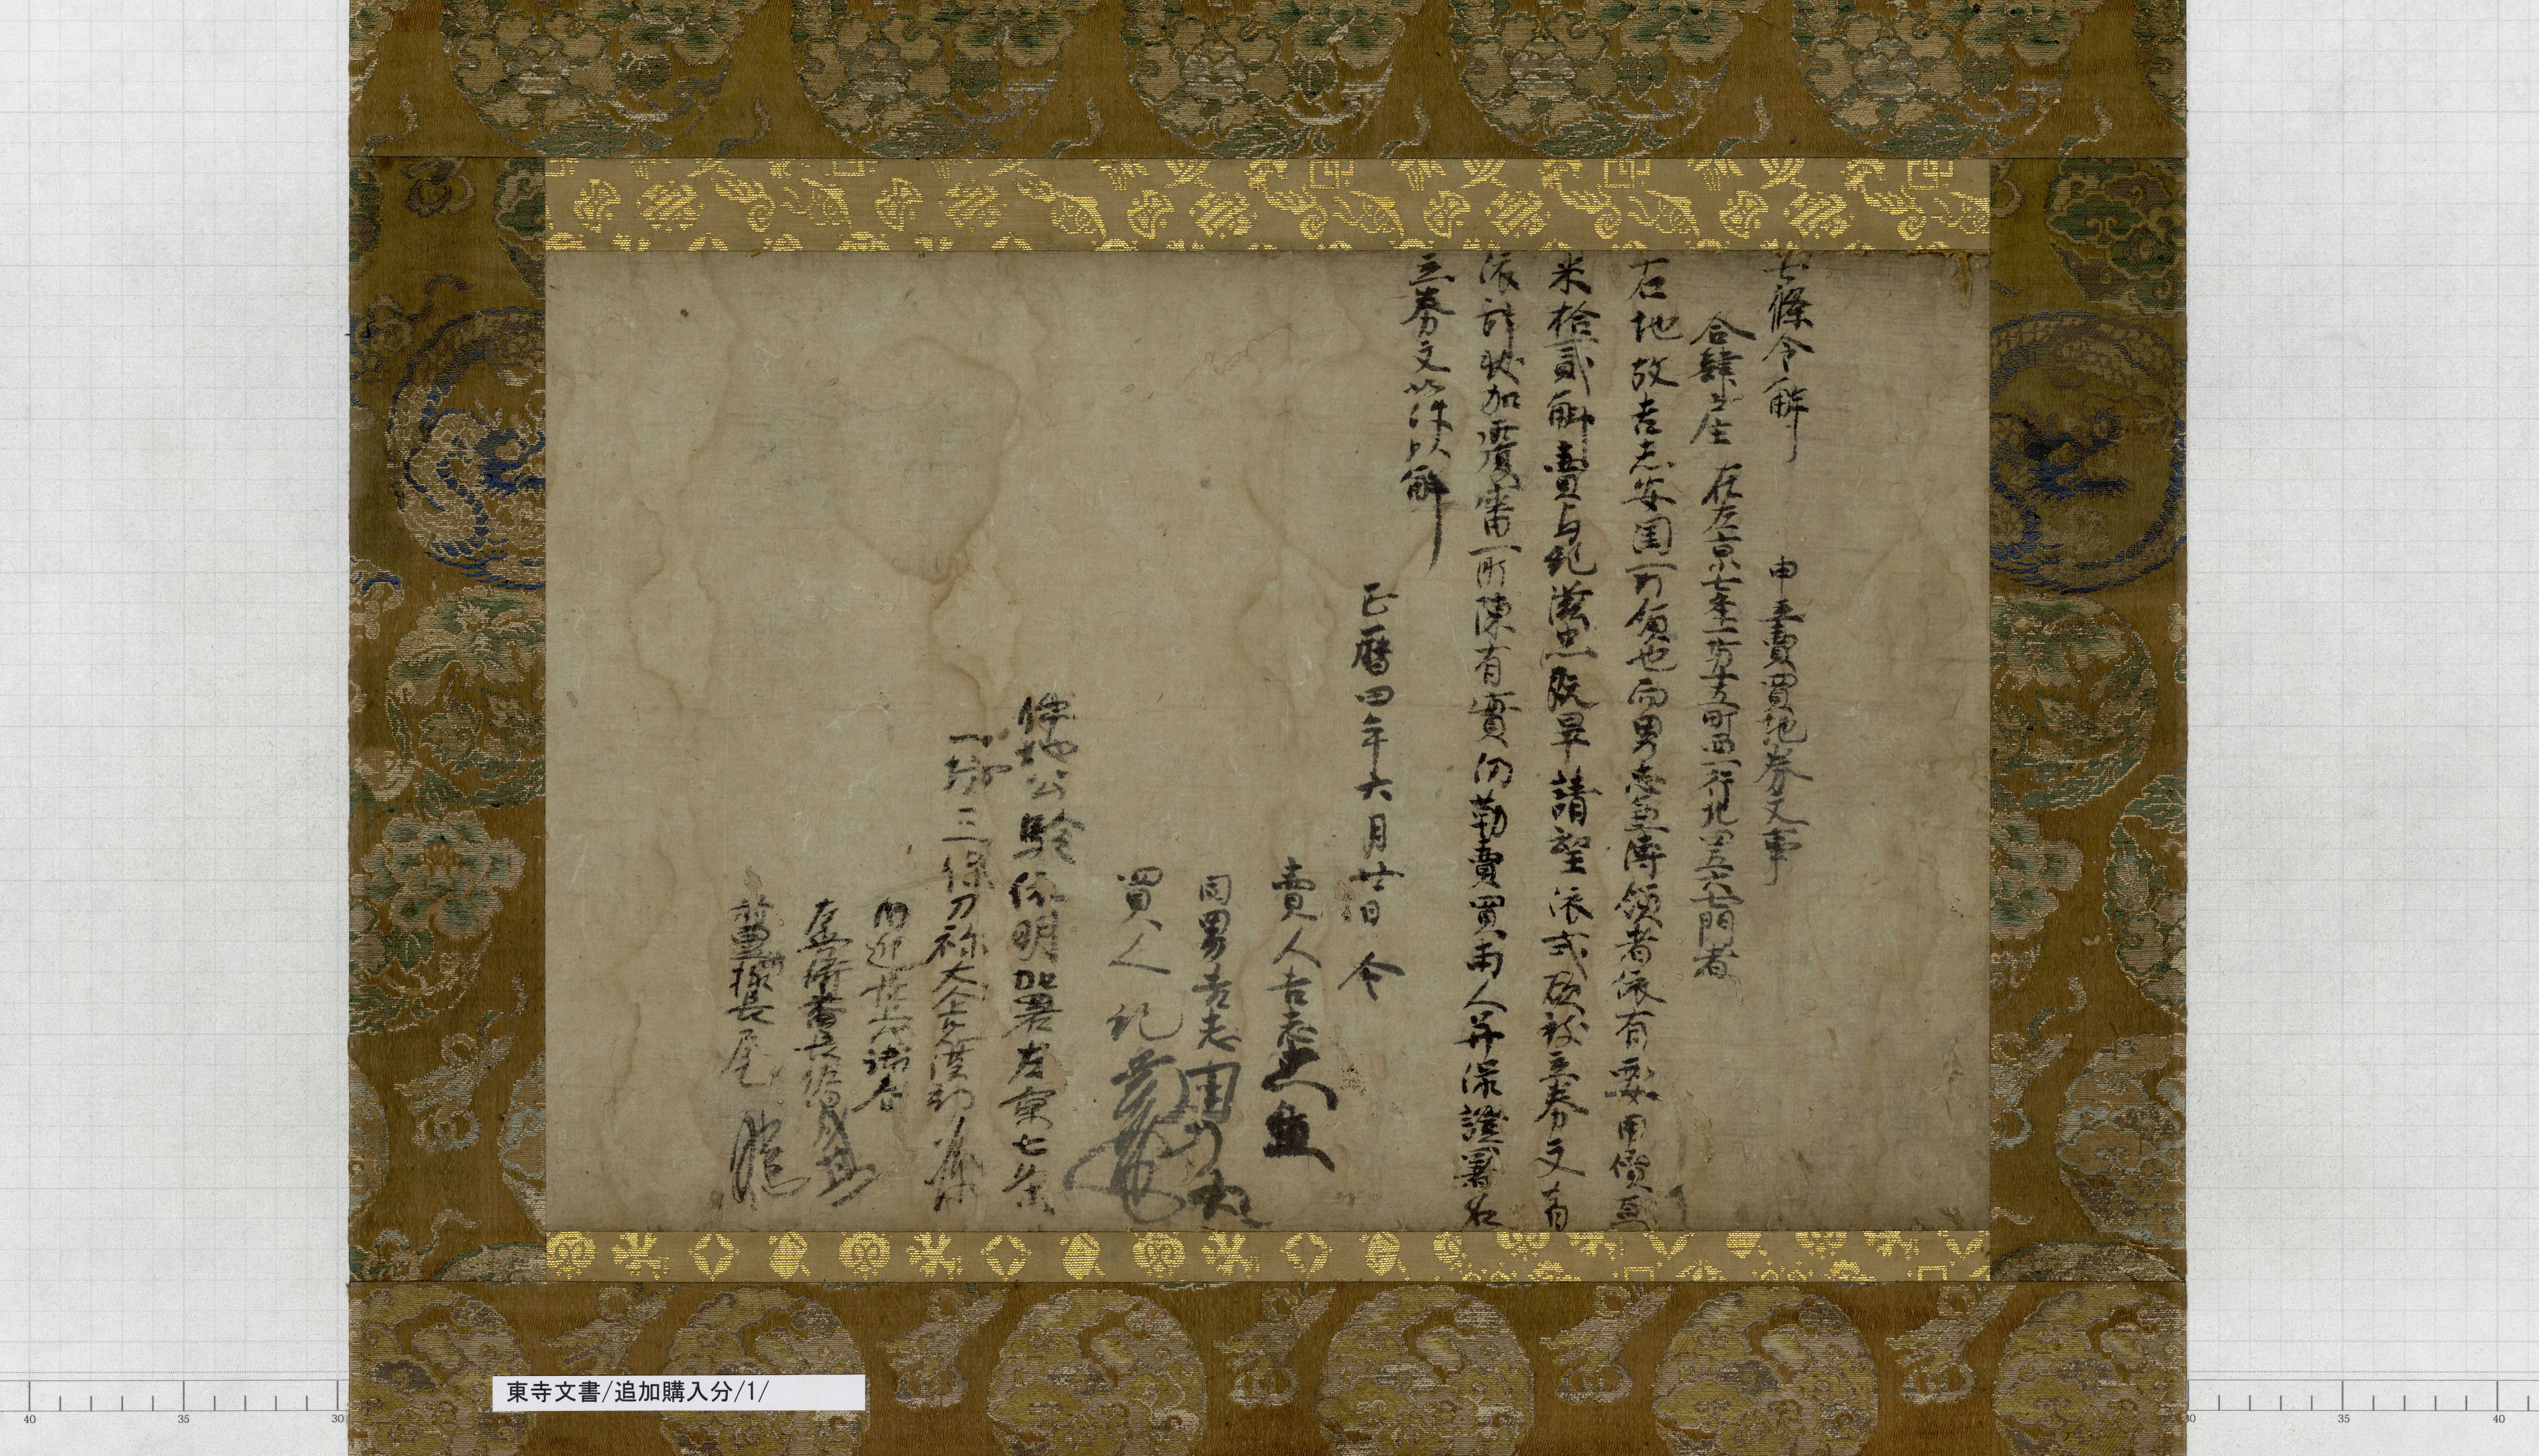 七條令解　申立賣買地券文事
合肆戸主　在左京七条一坊十五町西一行北四五六七門者
右地故吉志安国所領也而男忠兼傳領者依有要用價直
米拾貳斛賣与紀滋忠既畢請望依式欲被立券文者
依辞状加覆審所陳有實仍勒賣買両人并保證署名
立券文如件以解
正暦四年六月廿日　令
賣人吉志忠兼
同男吉志国
買人紀
件地公験依明加署左京七条
一坊三保刀祢大
内
左兵衛番長
長尾
東寺文書/追加購入分/1/
40 35 30
30 35 40